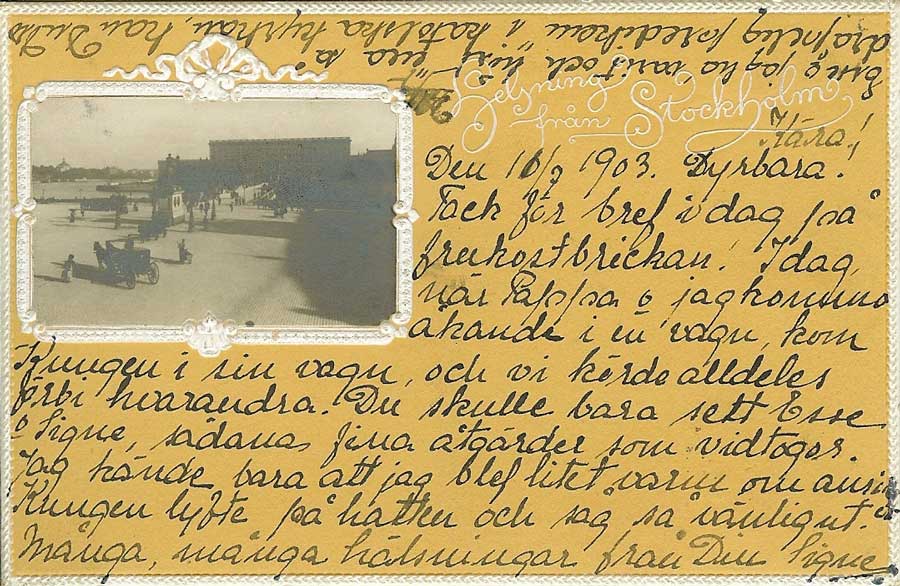 Helsning
från Stockholm
Kära!
Den 16/7 1903. Dyrbara!
Tack för bref i dag på
frukostbrickan! I dag,
när Pappa o jag kommo
åkande i en vagn, kom
Kungen i sin vagn, och vi körde alldeles
förbi hvarandra. Du skulle bara sett Esse
o Signe, sådana fina åtgärder som vidtogos.
Jag kände bara att jag blef litet varm om ansi
Kungen lyfte på hatten och såg så vänlig ut.
Många, många hälsningar från Din Signe
Esse o jag ha varit och hört en så
dråplig predikan i katolska kyrkan, han